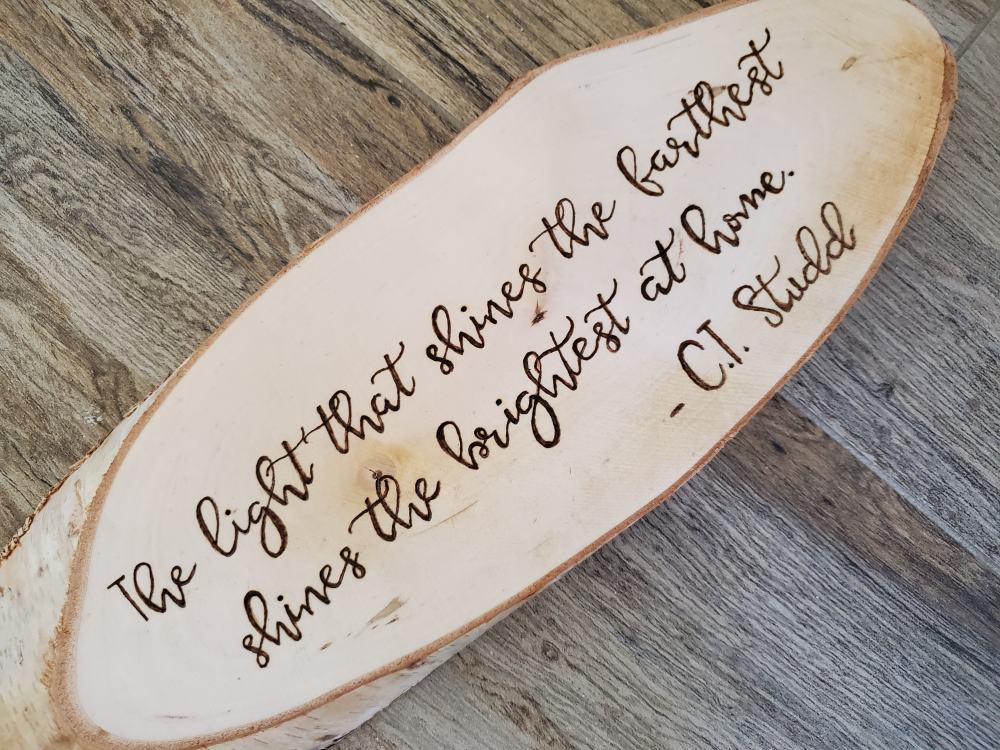 The light that shines the farthest
shines the brightest at home.
- C.T. Studd